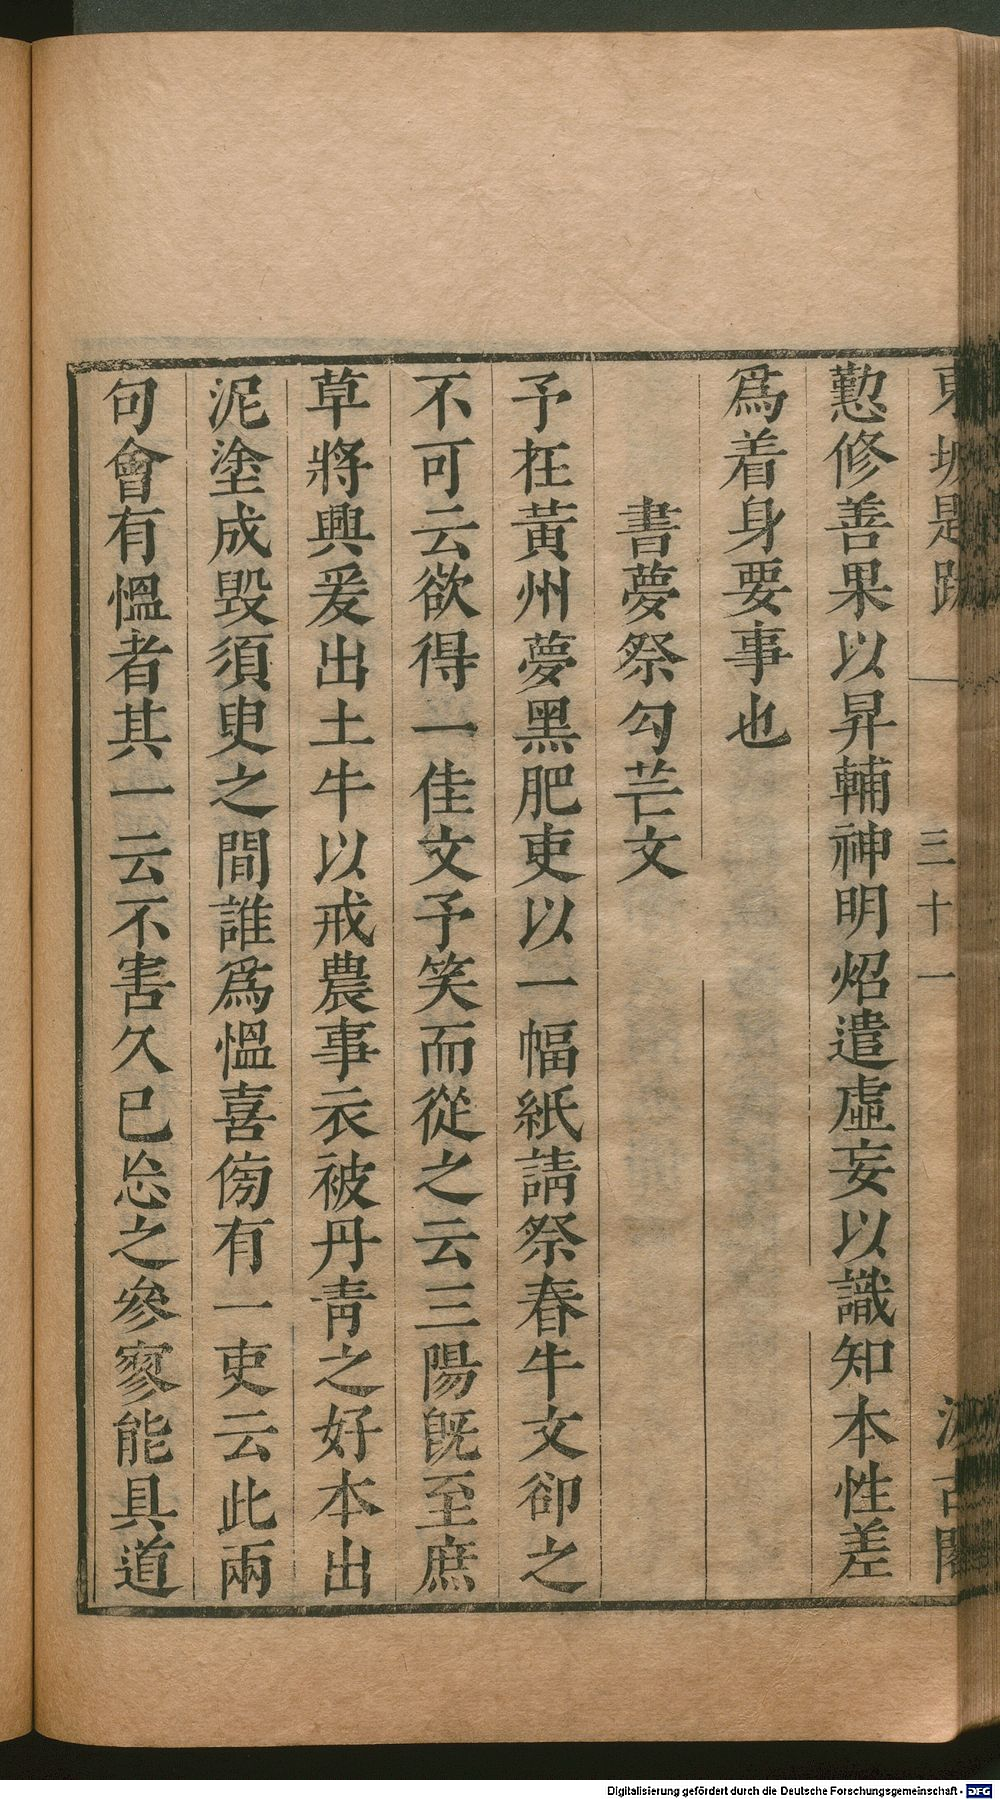 東坡題跋 一 三十一 汲古閣
懃修善果以昇輔神明炤遣虛妄以識知本性差
爲着身要事也
書夢祭勾芒文
予在黃州夢黑肥吏以一幅紙請祭春牛文卻之
不可云欲得一佳文予笑而從之云三陽旣至庶
草將興爰出土牛以戒農事衣被丹靑之好本出
泥塗成毀須臾之間誰爲慍喜傍有一吏云此兩
句會有慍者其一云不害久已忘之參寥能具道
Digitalisierung gefördert durch die Deutsche Forschungsgemeinschaft - DFG